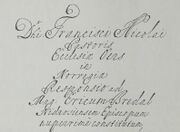 Dni Francisci Nicolai
Pastoris
Ecclesiæ Oens
in
Norvegia
Responsio ad
Mag. Ericum Bredal
Nidarosiensem Episcopum
nuperrime constitutum